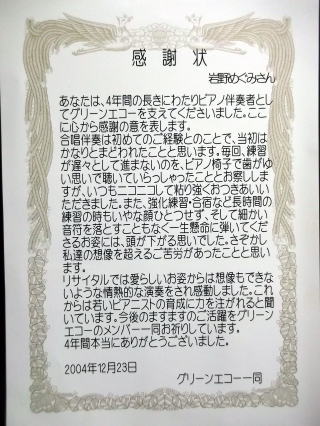 感謝状
岩野めぐみさん
あなたは、4年間の長さにわたりピアノ伴奏者とし
てグリーンエコーを支えてくださいました。ここ
に心から感謝の意を表します。
合唱伴奏は初めてのご経験とのことで、当初は
かなりとまどわれたことと思います。毎回、練習
が遅々として進まないのを、ピアノ椅子で歯がゆ
い思いで聴いていらっしゃったこととお察ししま
すが、いつもニコニコして粘り強くおつきあいい
ただきました。また、強化練習・合宿など長時間の
練習の時もいやな顔ひとつせず、そして細かい
音符を落とすこともなく一生懸命に弾いてくだ
さるお姿には、頭が下がる思いでした。さぞかし
私達の想像を超えるご苦労があったことと思い
ます。
リサイタルでは愛らしいお姿からは想像もできな
いような情熱的な演奏をされ感動しました。これ
からは若いピアニストの育成に力を注がれると聞
いています。今後のますますのご活躍をグリーン
エコーのメンバー一同お祈りしています。
4年間本当にありがとうございました。
2004年12月23日
グリーンエコー一同